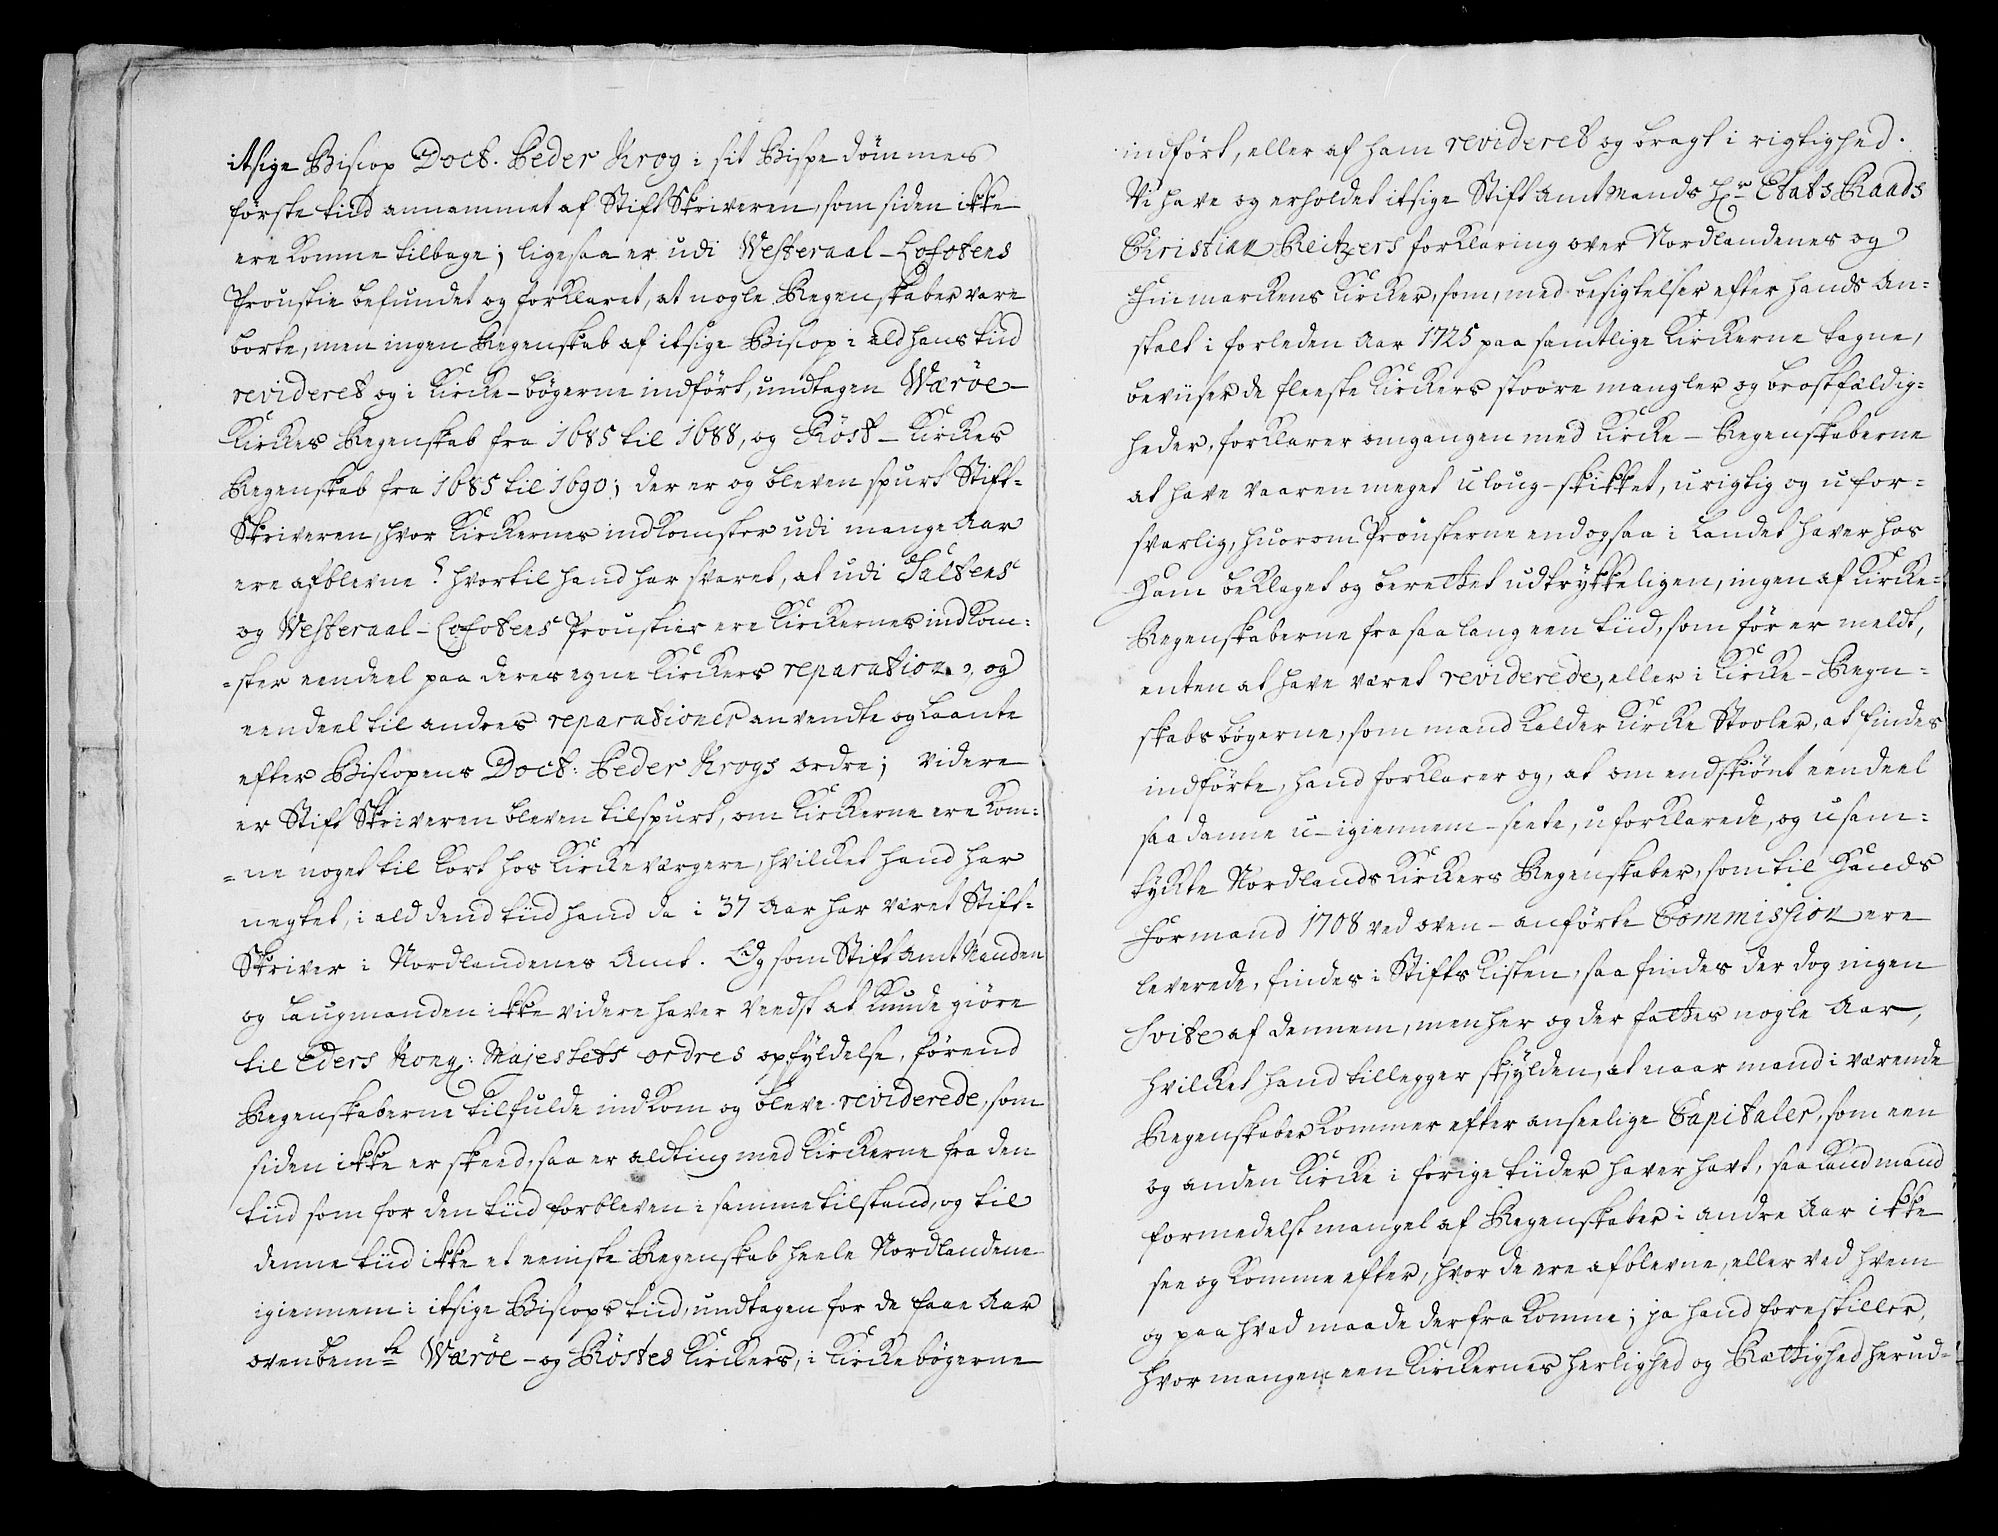 itsige Biscop Doct. Peder Krog i sit Bispe dömmes
förste tiid annammet af Stift Skriveren, som siden ikke
ere komne tilbage; ligesaa er udi Vesteraal-Lofotens
Proustie befundet og forklaret, at nogle Regenskaber vare
borte, men ingen Regenskab af itsige Biscop i ald hans tiid
revideret og i Kircke-bögerne indfört, undtagen Wæröe-
Kirckes Regenskab fra 1685 til 1688, og Röst-Kirckes
Regenskab fra 1685 til 1690; der er og bleven spurt Stift-
Skriveren, hvor Kirckernes indkomster udi mange Aar
ere afblevne? hvortil hand har svaret, at udi Saltens
og Vesteraal-Lofotens Proustier ere Kirckernes indkom-
-ster eendeel paa deres egne Kirckers reparation, og
eendeel til andres reparationer anvendte og laante
efter Biscopens Doct: Peder Krogs ordre; videre
er Stift Skriveren bleven tilspurt, om Kirckerne ere kom-
-ne noget til kort hos Kirckeværgere, hvilcket hand har
negtet, i ald dend tiid hand da i 37 Aar har været Stift-
Skriver i Nordlandenes Amt. Og som Stift Amt Manden
og Laugmanden ikke videre haver veedst at kunde giöre
til Eders Kong: Majestets ordres opfyldelse, förend
Regenskaberne tilfulde indkom og bleve reviderede, som
siden ikke er skeed, saa er alting med Kirckerne fra den
tiid som for den tiid forbleven i samme tilstand, og til
denne tiid ikke et eeniste Regenskab heele Nordlandene
igiennem i itsige Biscops tiid, undtagen for de faae Aar
ovenbemte Wæröe- og Röstes Kirckers, i Kircke bögerne
indfört, eller af ham revideret og bragt i rigtighed.
Vi have og erholdet itsige Stift Amt Mands Hr Etats Raads
Christian Reitzers forklaring over Nordlandenes og
Finmarckens Kircker, som, med besigtelser efter hands An-
stalt i forleden Aar 1725 paa samtlige Kirckerne tagne,
beviiser de fleeste Kirckers stoore mangler og bröstfældig-
heder, forklarer omgangen med Kircke-Regenskaberne
at have vaaren meget uloug-skikket, urigtig og ufor-
svarlig, huorom Prousterne endogsaa i Landet haver hos
ham beklaget og berettet udtrykkeligen, ingen af Kircke-
Regenskaberne fra saa lang een tiid, som för er meldt,
enten at have været reviderede, eller i Kircke-Regn-
skabs bögerne, som mand kalder Kircke Stooler, at findes
indförte, hand forklarer og, at om endskiönt eendeel
saadanne u-igiennem-seete, uforklarede, og usam-
tyckte Nordlands Kirckers Regenskaber, som til Hands
Formand 1708 ved oven-anförte Commission ere
leverede, findes i Stifts kisten, saa findes der dog ingen
Svite af dennem, men her og der fattes nogle Aar,
hvilcket hand tillegger skylden, at naar mand i værende
Regenskaber kommer efter anseelige Capitaler, som een
og anden Kircke i forige tiider haver havt, saa kand mand
formedelst mangel af Regenskaber i andre Aar ikke
see og komme efter, hvor de ere afblevne, eller ved hvem
og paa hvad maade derfra komne; ja hand forestiller,
hvor mangen een Kirckernes herlighed og Rettighed herud-